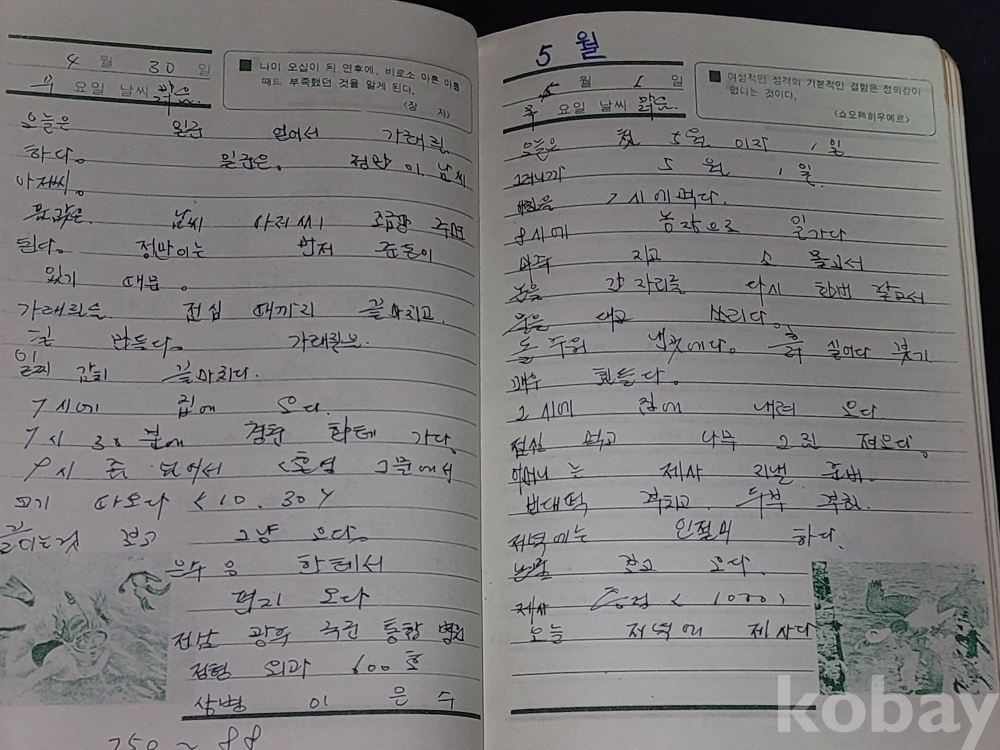 4 월 30 일
요일 날씨 맑음
■ 나이 오십이 된 연후에, 비로소 마흔 아홉
때으 부족했던 것을 알게 된다.
〈장 자〉
오늘은 일군 얻어서 가래질
하다. 일군은. 정만이. 남씨
아저씨.
품값은. 남씨 아저씨 조금만 주면
된다. 정만이는 먼저 준돈이
있기 때문.
가래질을 점심 때까지 끝마치고
만들다. 가래질은.
일찌 감치 끝마치다.
7시에 집에 오다.
7시 30분에 한테 가다.
9시 넘어서
오다 <10.30>
보고 그냥 오다.
은수 한테서
편지 오다
전남 광주 국군 통합 병원
정형 외과 600호
상병 이 은 수
750~88
5월
5 월 1 일
요일 날씨 맑음.
■ 여성적인 성격의 기본적인 결함은 정의감이
없다는 것이다.
〈쇼오펜하우에르〉
오늘은 첫 5월 이자 1일
그러니까 5월 1일.
7시에 먹다.
8시에 농장으로 일가다
지고 소 몰고서
논을 간 자리를 다시 한번 갈고서
물을 대고 쓰리다.
돌 주워 냇곳에다. 흙 실어다 붓기
매우 힘들다.
2시에 집에 내려 오다
점심 먹고 나무 2짐 져오다.
어머니는 제사 지낼 준비.
빈대떡 부치고. 두부
저녁에는 인절미 하다.
보고 오다.
제사 <1000>
오늘 저녁에 제사다
kobay